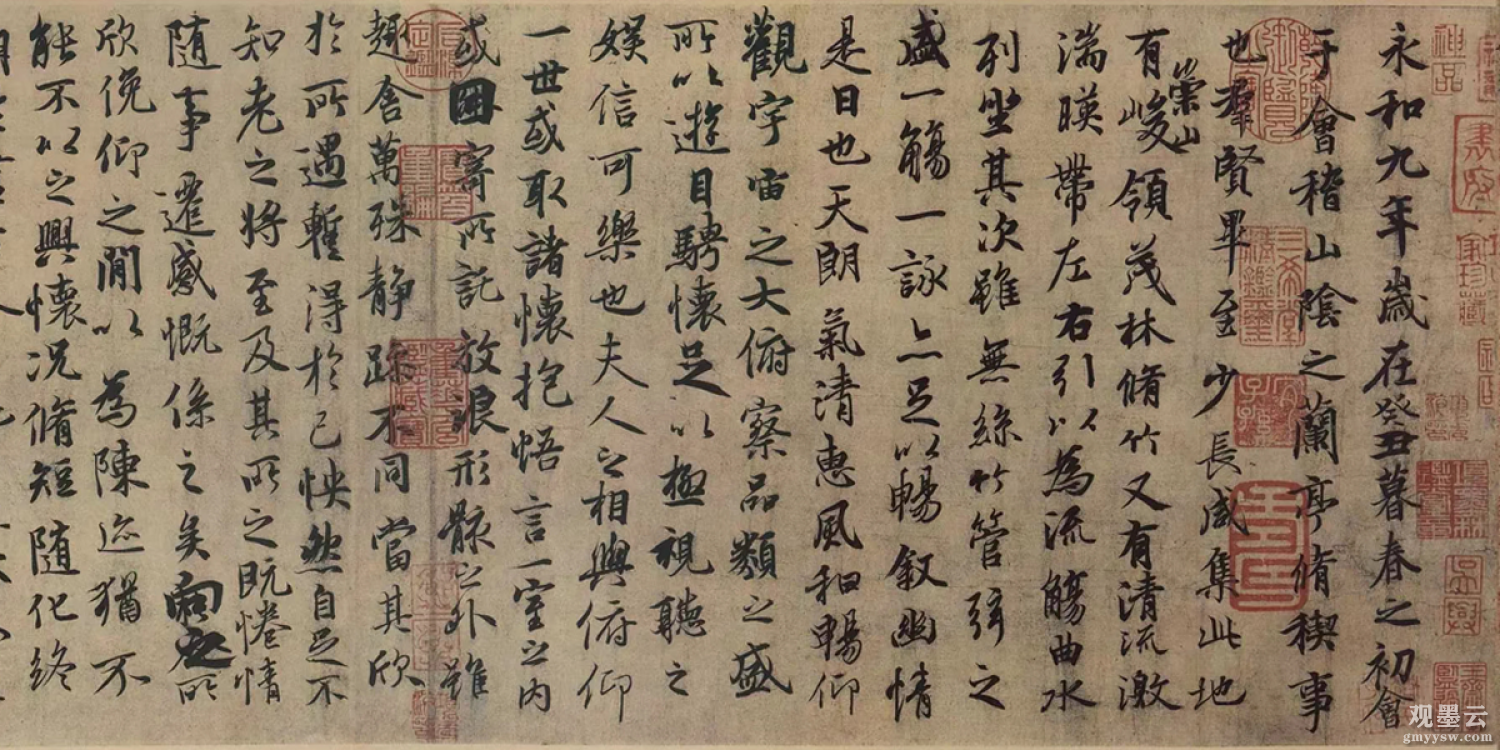 永和九年歲在癸丑暮春之初會
于會稽山陰之蘭亭脩稧事
也羣賢畢至少長咸集此地
有崇山峻領茂林脩竹又有清流激
湍暎帶左右引以為流觴曲水
列坐其次雖無絲竹管弦之
盛一觴一詠亦足以暢敘幽情
是日也天朗氣清惠風和暢仰
觀宇宙之大俯察品類之盛
所以遊目騁懷足以極視聽之
娛信可樂也夫人之相與俯仰
一世或取諸懷抱悟言一室之內
或因寄所託放浪形骸之外雖
趣舍萬殊静躁不同當其欣
於所遇暫得於己怏然自足不
知老之將至及其所之既惓情
隨事遷感慨係之矣向之所
欣俛仰之閒以為陳迹猶不
能不以之興懷況脩短隨化終
神品
三希堂精鑑璽
宜子孫
吳興
观墨云
gmyysw.com